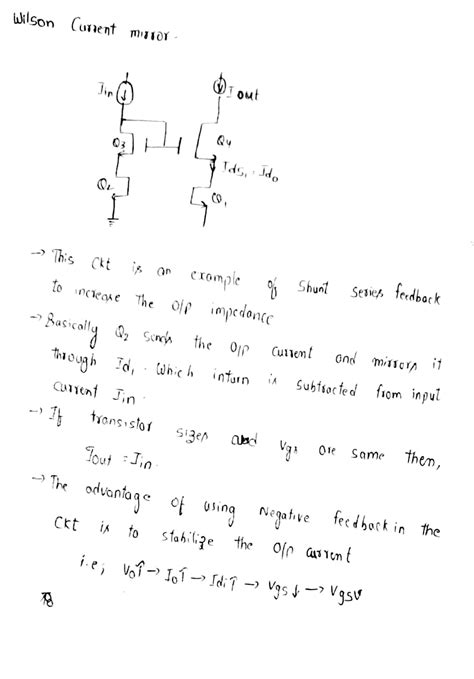 Wilson Current mirror.
Iin
I out
Q3
Q4
Ids1 = Ido
Q2
Q1
→ This Ckt is an example of Shunt series feedback
to increase The O/P impedance
→ Basically Q2 the O/P current and mirrors it
through Id1. Which inturn is subtracted from input
current Iin.
→ If transistor sizes and Vgs are same then,
Iout = Iin.
→ The advantage of using Negative feedback in the
Ckt is to stabilize the O/P current
i.e; Vo↑ → Io↑ → Idi↑ → Vgs↓ →